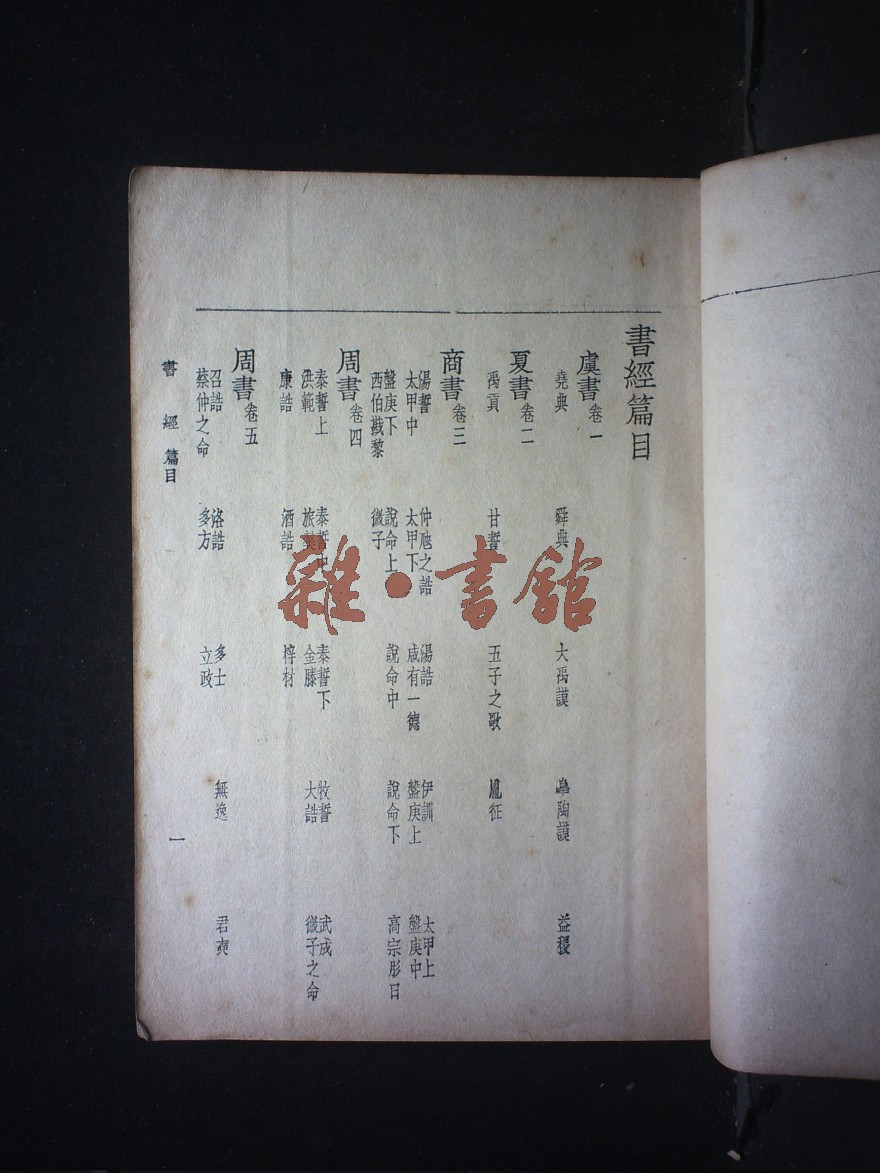 書經篇目
虞書 卷一
堯典 舜典 大禹謨 皋陶謨 益稷
夏書 卷二
禹貢 甘誓 五子之歌 胤征
商書 卷三
湯誓 仲虺之誥 湯誥 伊訓 太甲上
太甲中 太甲下 咸有一德 盤庚上 盤庚中
盤庚下 說命上 說命中 說命下 高宗肜日
西伯戡黎 微子
周書 卷四
泰誓上 泰誓中 泰誓下 牧誓 武成
洪範 旅獒 金縢 大誥 微子之命
康誥 酒誥 梓材
周書 卷五
召誥 洛誥 多士 無逸 君奭
蔡仲之命 多方 立政
書經 篇目 一
雜·書館